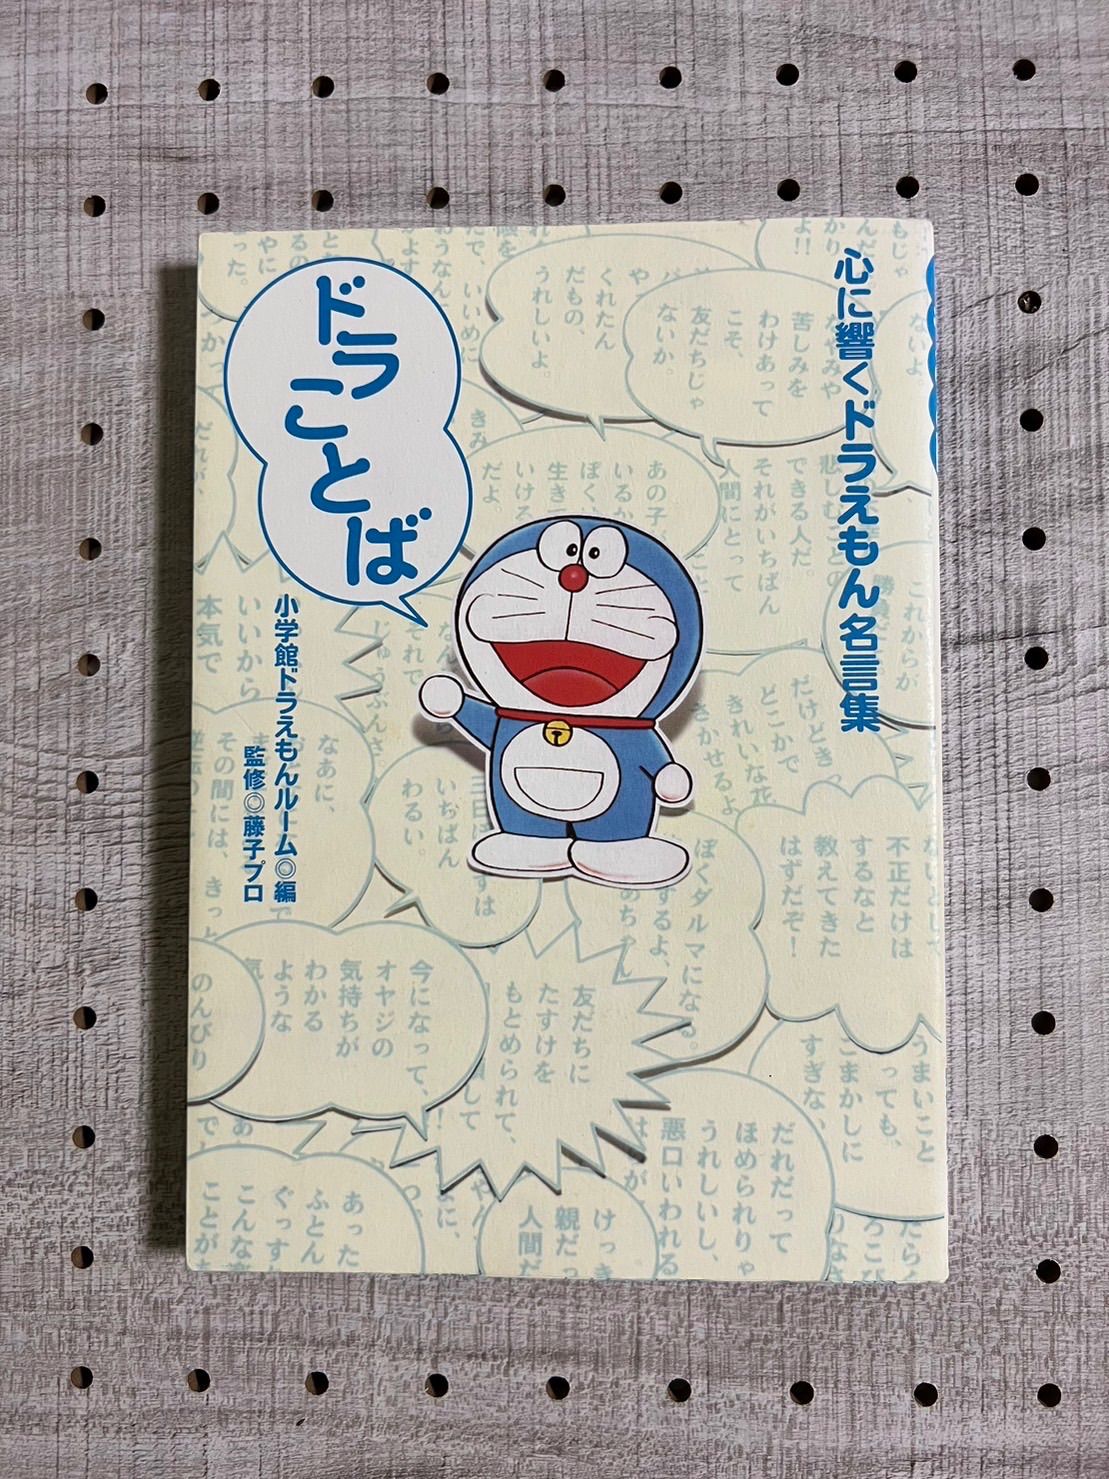 心に響くドラえもん名言集
ドラ
ことば
小学館ドラえもんルーム◎編
監修◎藤子プロ
くれたん
だもの、
うれしいよ。
友だちじゃ
ないか。
苦しみを
わけあって
こそ、
できる人だ。
それがいちばん
人間にとって
あの子
だよ。
本気で
いいから
それで
じゅうぶんさ。
なあに、
その間には、きっと
いちばん
わるい。
これからが
だけどき
どこかで
きれいな花
きかせるよ
ぼくダルマになる。
するよ、
不正だけは
するなと
教えてきた
はずだぞ！
今になって、
オヤジの
気持ちが
わかる
ような
のんびり
友だちに
たすけを
もとめられて、
うまいこと
いっても、
ごまかしに
すぎない
だれだって
ほめられりゃ
うれしいし、
悪口いわれる
あった
ふとん
ぐっす
こんな
ことが
けっき
親だっ
人間だ